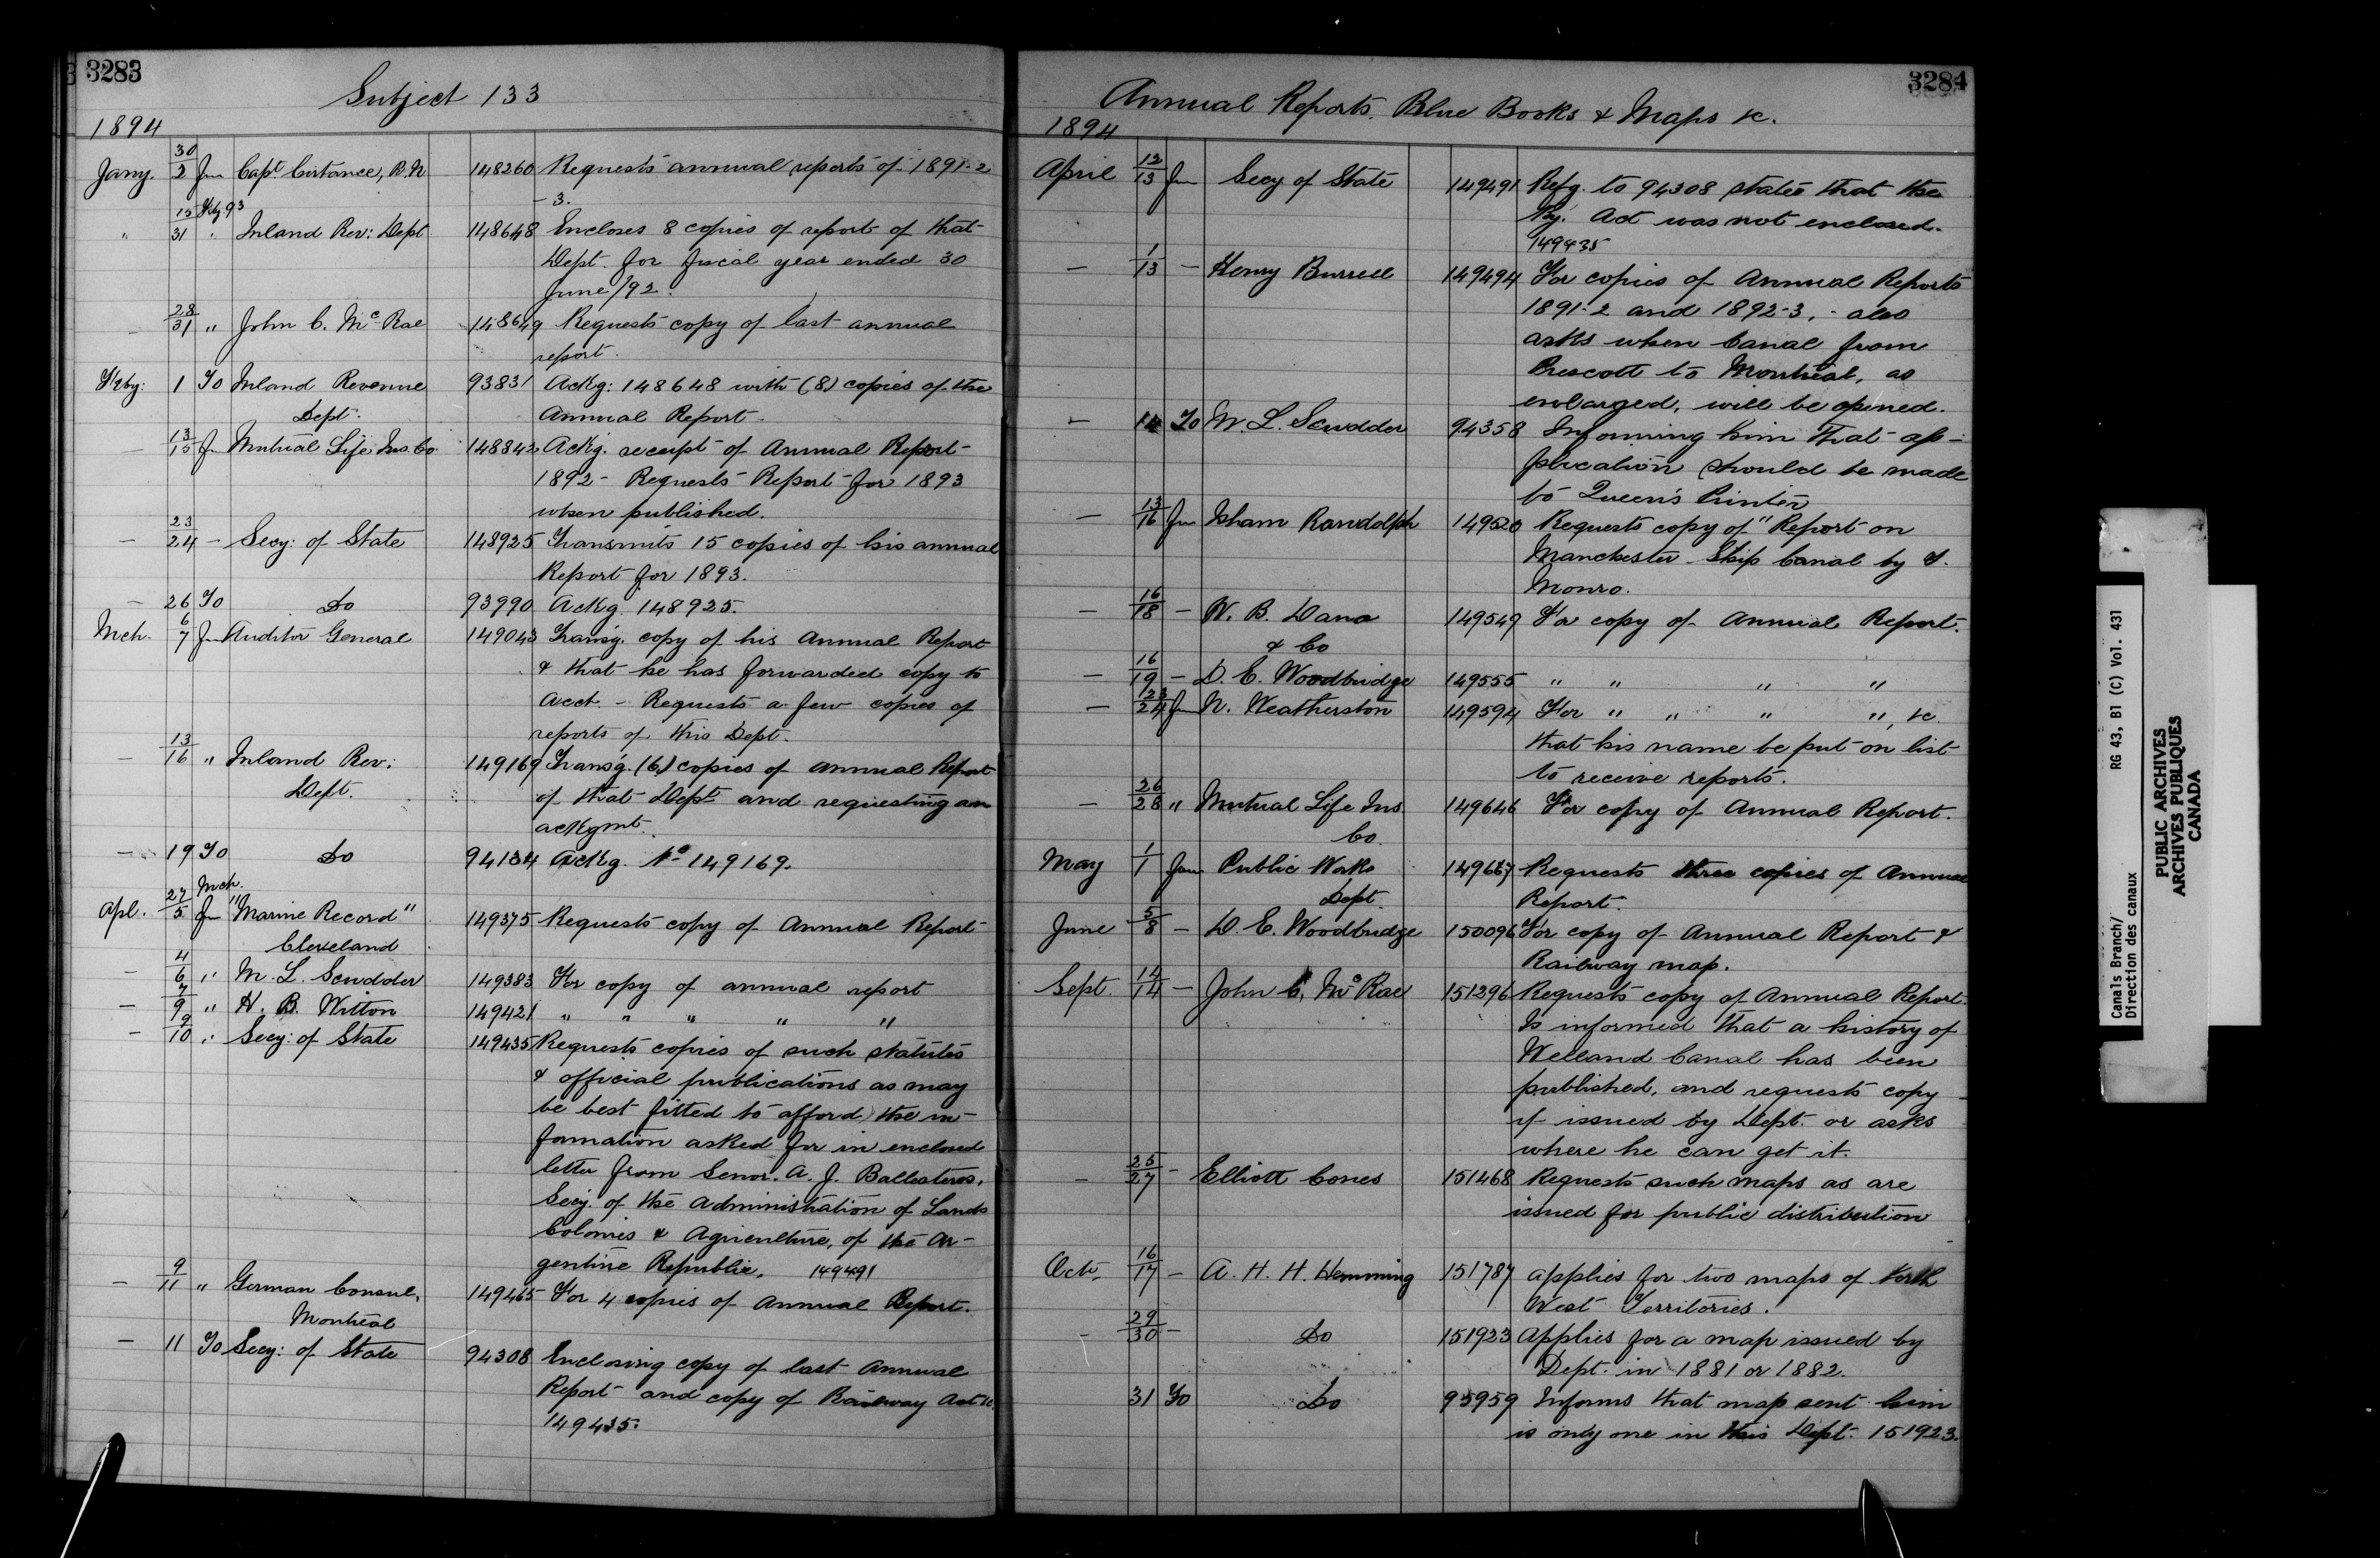 3283
Subject 133
1894
Jany. 30/2 fm Capt Custance, R.N 148260 Requests annual reports of 1891-2
-3.
" 15 Feby 93/31 " Inland Rev: Dept 148648 Encloses 8 copies of report of that
Dept. for fiscal year ended 30
June/92.
28/31 " John C. McRae 148649 Requests copy of last annual
report.
Feby: 1 To Inland Revenue 93831 Ackg: 148648 with (8) copies of the
Dept. Annual Report.
— 13/15 fm Mutual Life Ins. Co. 148842 Ackg. receipt of Annual Report
1892 - Requests Report for 1893
when published.
— 23/24 — Secy: of State 148925 Transmits 15 copies of his annual
Report for 1893.
— 26 To Do 93990 Ackg. 148925.
Mch. 6/7 fm Auditor General 149043 Transg. copy of his Annual Report
& that he has forwarded copy to
Acct. - Requests a few copies of
reports of this Dept.
— 13/16 " Inland Rev: 149169 Transg. (6) copies of Annual Report
Dept. of that Dept and requesting an
ackgmt.
— 19 To Do 94134 Ackg. No 149169.
Apl. 27 Mch./5 fm "Marine Record" 149375 Requests copy of Annual Report
Cleveland
— 4/6 " M. L. Scudder 149383 For copy of annual report
— 7/9 " H. B. Witton 149421 " " " " "
— 9/10 " Secy: of State 149435 Requests copies of such statutes
& official publications as may
be best fitted to afford the in-
formation asked for in enclosed
letter from Senor. A. J. Ballesteros,
Secy. of the Administration of Lands
Colonies & Agriculture, of the Ar-
gentine Republic. 149491
— 9/11 " German Consul, 149465 For 4 copies of Annual Report.
Montreal
— 11 To Secy: of State 94308 Enclosing copy of last Annual
Report and copy of Railway Act &c.
149435.
3284
Annual Reports, Blue Books & Maps &c.
1894
April 12/13 fm Secy of State 149491 Refg. to 94308 states that the
Ry. Act was not enclosed.
149435
— 1/13 — Henry Burrell 149494 For copies of Annual Reports
1891-2 and 1892-3, - also
asks when Canal from
Prescott to Montreal, as
enlarged, will be opened.
— 14 To M. L. Scudder 94358 Informing him that ap-
plication should be made
to Queen's Printer
— 13/16 fm Isham Randolph 149520 Requests copy of "Report on
Manchester Ship Canal by T.
Monro.
— 16/18 — W. B. Dana 149549 For copy of Annual Report.
& Co
— 16/19 — D. E. Woodbridge 149555 " " " "
— 23/24 fm N. Weatherston 149594 For " " " ", &c.
that his name be put on list
to receive reports.
— 26/28 " Mutual Life Ins. 149646 For copy of Annual Report.
Co.
May 1/1 fm Public Works 149667 Requests three copies of Annual
Dept. Report.
June 5/8 — D. E. Woodbridge 150096 For copy of Annual Report &
Railway map.
Sept. 14/14 — John C. McRae 151296 Requests copy of Annual Report.
Is informed that a history of
Welland Canal has been
published, and requests copy
if issued by Dept. or asks
where he can get it.
— 25/27 — Elliott Coues 151468 Requests such maps as are
issued for public distribution
Oct. 16/17 — A. H. H. Hemming 151787 Applies for two maps of North
West Territories.
— 29/30 — Do 151923 Applies for a map issued by
Dept. in 1881 or 1882.
31 To Do 95959 Informs that map sent him
is only one in this Dept. 151923.
Canals Branch/ RG 43, B1 (C) Vol. 431
Direction des canaux
PUBLIC ARCHIVES
ARCHIVES PUBLIQUES
CANADA